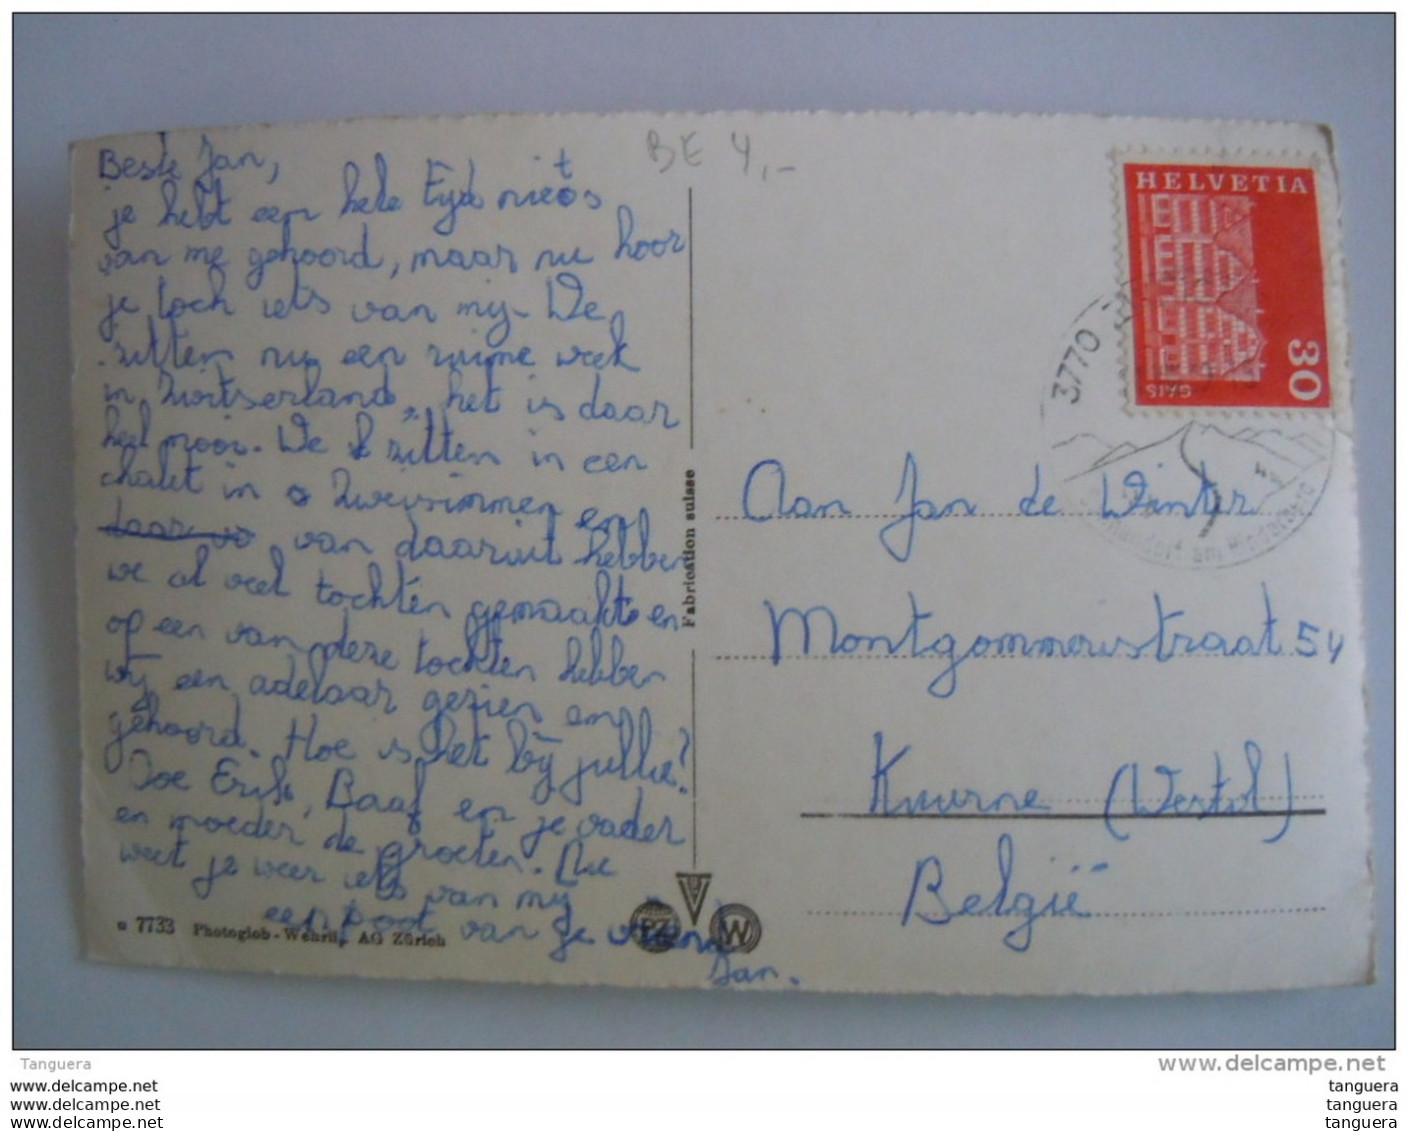 BE 4,-
Beste Jan,
je hebt een hele tijd niets
van me gehoord, maar nu hoor
je toch iets van mij. We
zitten nu een ruime week
in Zwitserland, het is daar
heel mooi. We zitten in een
chalet in Zweisimmen en
daar vo van daaruit hebben
we al veel tochten gemaakt en
op een van deze tochten hebben
wij een adelaar gezien en
gehoord. Hoe is het bij jullie?
Doe Erik, Baaf en je vader
en moeder de groeten. Nu
weet je weer iets van mij
een poot van je vriend
Jan.
Fabrication suisse
7733 Photoglob-Wehrli, AG Zürich
PZ
W
HELVETIA
30
GAIS
3770
am Niederberg
Aan Jan de Winter
Montgommerystraat 54
Kuurne (Westvl)
België
Tanguera
www.delcampe.net
www.delcampe.com
www.delcampe.com
www.delcampe.com
tanguera
tanguera
tanguera